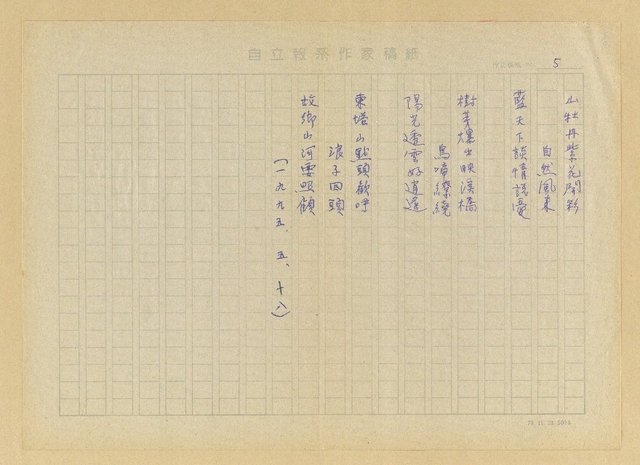 自立報系作家稿紙
5
山牡丹紫花開彩
自然風來
藍天下談情說愛
樹芽爆出映溪橋
鳥啼繚繞
陽光透雲好逍遙
東塔山點頭歡呼
浪子回頭
故鄉山河要照顧
(一九九五、五、十八)